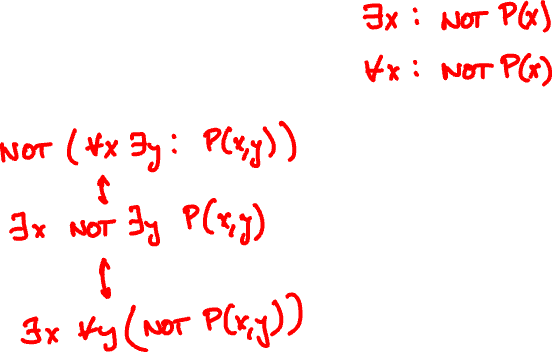 ∃x : NOT P(x)
∀x : NOT P(x)
NOT (∀x ∃y : P(x,y))
↕
∃x NOT ∃y P(x,y)
↕
∃x ∀y (NOT P(x,y))